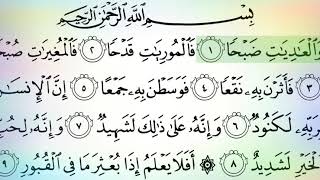 بِسْمِ اللَّهِ الرَّحْمَٰنِ الرَّحِيمِ
وَالْعَادِيَاتِ ضَبْحًا ١ فَالْمُورِيَاتِ قَدْحًا ٢ فَالْمُغِيرَاتِ صُبْحًا
٣ فَأَثَرْنَ بِهِ نَقْعًا ٤ فَوَسَطْنَ بِهِ جَمْعًا ٥ إِنَّ الْإِنسَانَ
لِرَبِّهِ لَكَنُودٌ ٦ وَإِنَّهُ عَلَىٰ ذَٰلِكَ لَشَهِيدٌ ٧ وَإِنَّهُ لِحُبِّ
الْخَيْرِ لَشَدِيدٌ ٨ ۞ أَفَلَا يَعْلَمُ إِذَا بُعْثِرَ مَا فِي الْقُبُورِ ٩